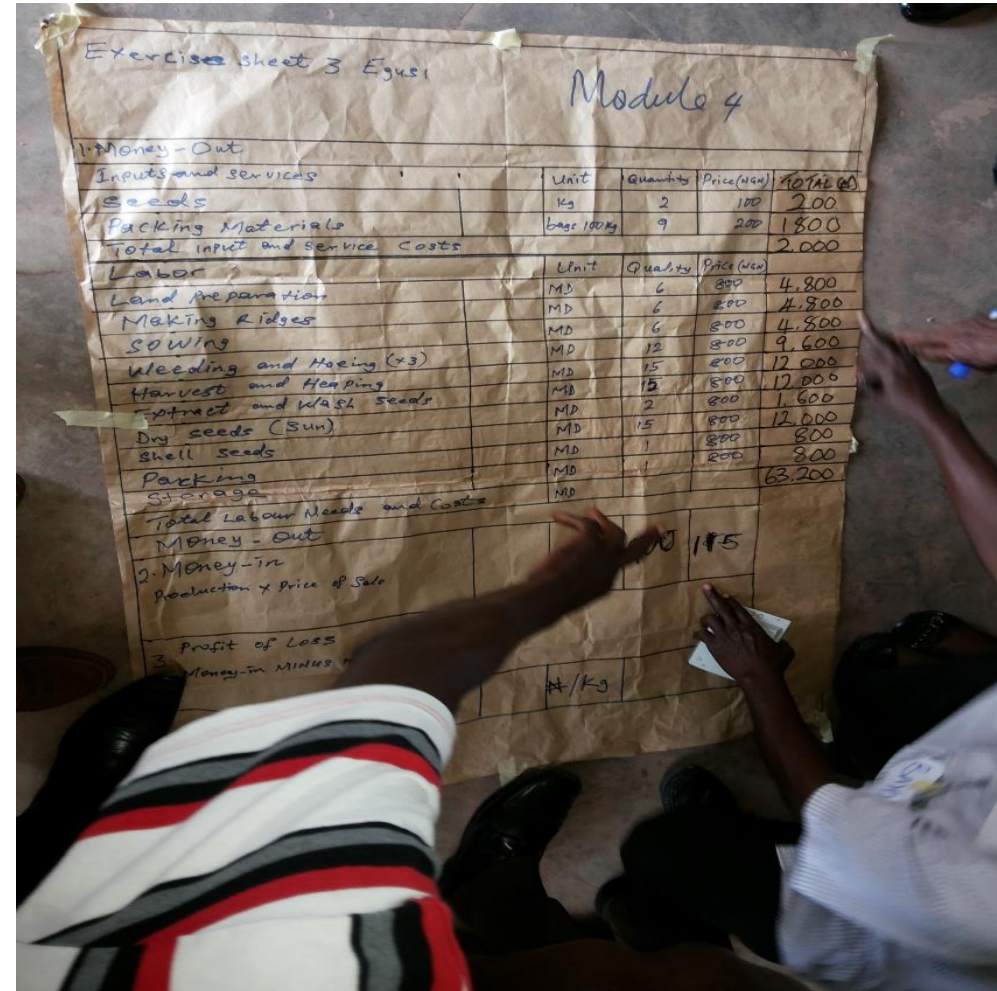 Exercise sheet 3 Egusi
Module 4
1. Money-Out
Inputs and services Unit Quantity Price (NGN) TOTAL
Seeds Kg 2 100 200
Packing Materials bags 100kg 9 200 1800
Total input and service costs 2.000
Labor Unit Quality Price (NGN)
Land Preparation MD 6 800 4.800
Making Ridges MD 6 800 4.800
Sowing MD 6 800 4.800
Weeding and Hoeing (x3) MD 12 800 9.600
Harvest and Heaping MD 15 800 12 000
Extract and Wash seeds MD 15 800 12.000
Dry seeds (Sun) MD 2 800 1.600
Shell Seeds MD 15 800 12.000
Packing MD 1 800 800
Storage MD 1 800 800
Total Labour Needs and Costs MD 63.200
Money-Out
2. Money-in 115
Production x Price of Sale
3. Profit of Loss
Money-in MINUS
₦/Kg